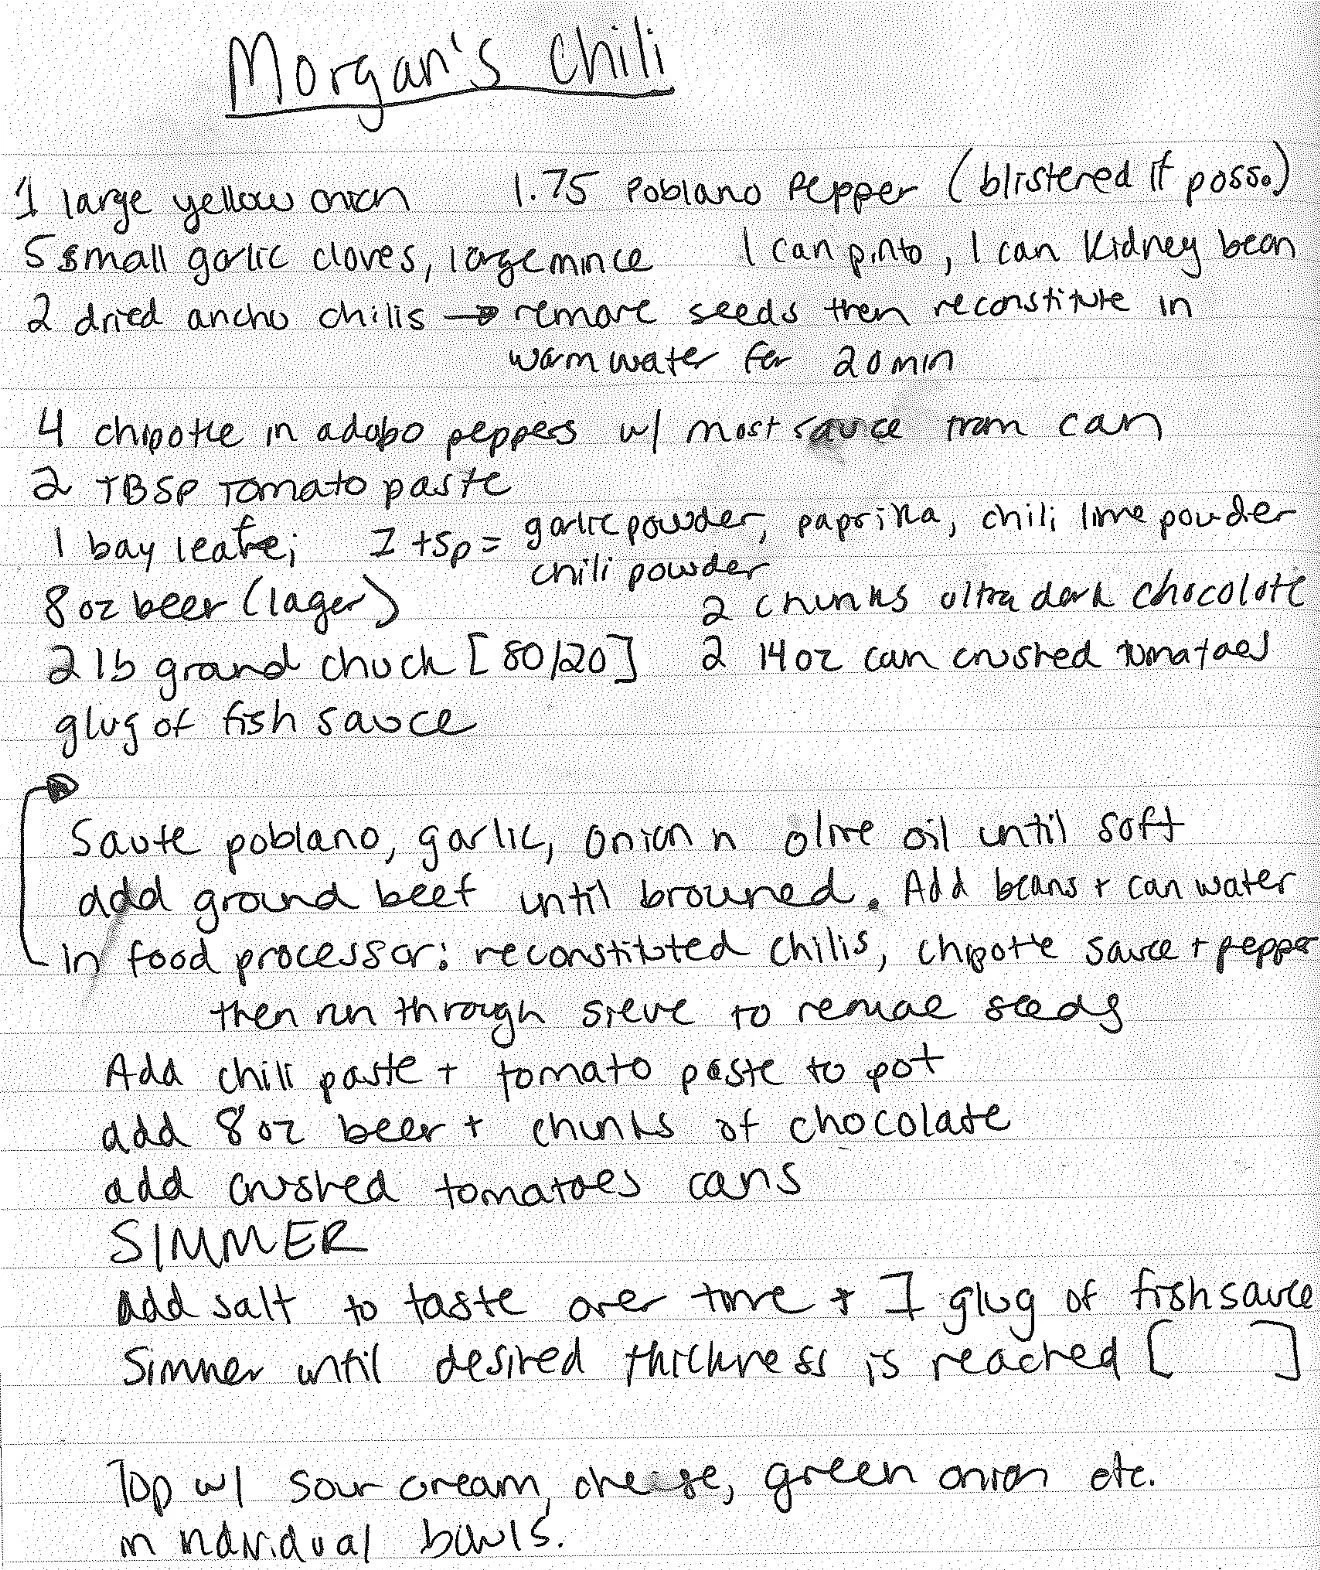 Morgan's Chili
1 large yellow onion 1.75 Poblano Pepper (blistered if poss.)
5 small garlic cloves, large mince 1 can pinto, 1 can Kidney bean
2 dried ancho chilis → remove seeds then reconstitute in
warm water for 20 min
4 chipotle in adobo peppers w/ most sauce from can
2 TBSP Tomato paste
1 bay leafe; 1 tsp = garlic powder, paprika, chili lime powder
chili powder
8 oz beer (lager) 2 chunks ultra dark chocolate
2 lb ground chuck [80/20] 2 14 oz can crushed tomatoes
glug of fish sauce
Saute poblano, garlic, onion n olive oil until soft
add ground beef until browned. Add beans + can water
in food processor: reconstituted chilis, chipotle sauce + pepper
then run through sieve to remove seeds
Add chili paste + tomato paste to pot
add 8 oz beer + chunks of chocolate
add crushed tomatoes cans
SIMMER
add salt to taste over time + 1 glug of fish sauce
Simmer until desired thickness is reached [ ]
Top w/ sour cream, cheese, green onion etc.
in individual bowls.